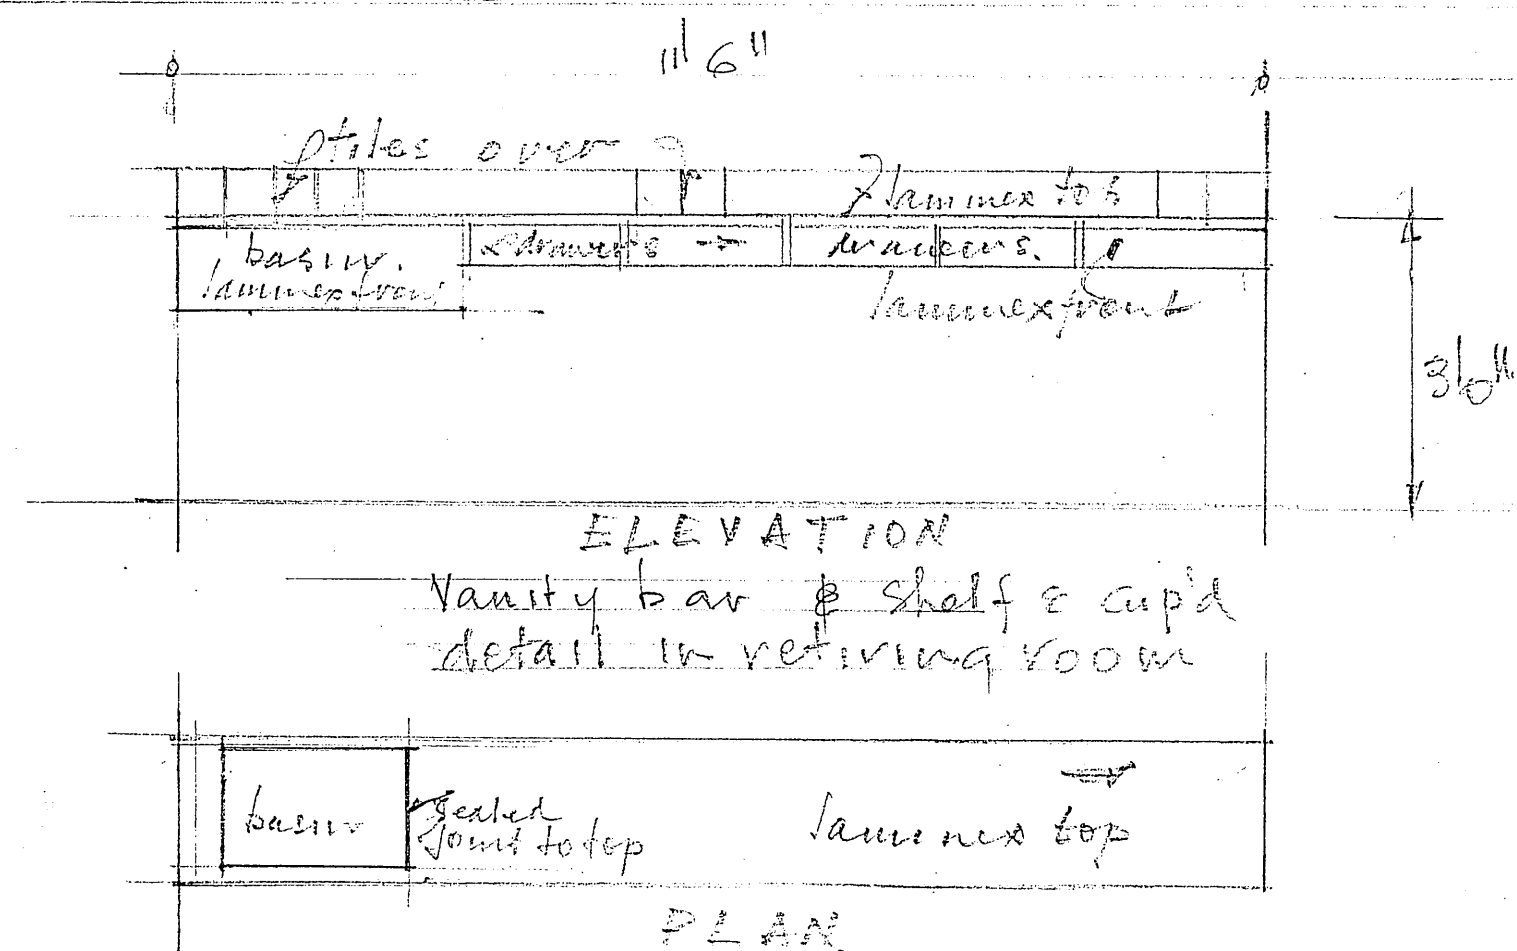 11' 6"
tiles over
laminex top
basin.
laminex front
drawers
drawers.
laminex front
3'0"
ELEVATION
Vanity bar & shelf & cup'd
detail in retiring room
basin
sealed
joint to top
laminex top
PLAN